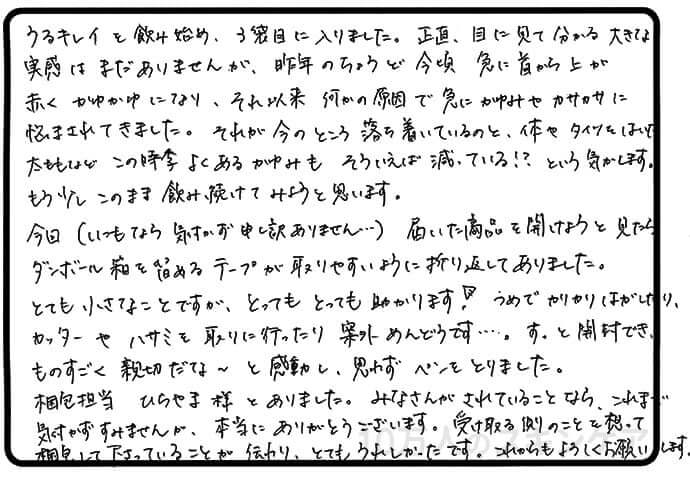 うるキレイを飲み始め、3袋目に入りました。正直、目に見て分かる大きな
実感はまだありませんが、昨年のちょうど今頃 急に首から上が
赤くかゆかゆになり、それ以来 何かの原因で急にかゆみやカサカサに
悩まされてきました。それが今のところ落ち着いているのと、体やタイツをはいた
太ももなど この時季よくあるかゆみも そういえば減っている!? という気がします。
もう少しこのまま飲み続けてみようと思います。
今回(いつもなら気付かず申し訳ありません…) 届いた商品を開けようと見たら
ダンボール箱を留めるテープが取りやすいように折り返してありました。
とても小さなことですが、とってもとっても助かります! つめでカリカリはがしたり、
カッターやハサミを取りに行ったり 案外めんどうです…。すっと開封でき、
ものすごく親切だな〜と感動し、思わずペンをとりました。
梱包担当 ひらやま様とありました。みなさんがされていることなら、これまで
気付かずすみませんが、本当にありがとうございます。受け取る側のことを想って
梱包して下さっていることが伝わり、とてもうれしかったです。これからもよろしくお願いします。